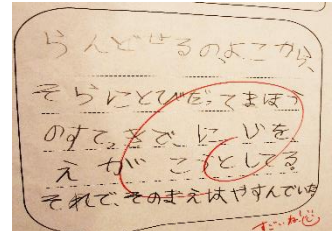 らんどせるの、よこから、
そらにとびだってまほう
のすてきで、にじを
えがこうとしてる。
それで、そのまえはやすんでいた
すごいね!